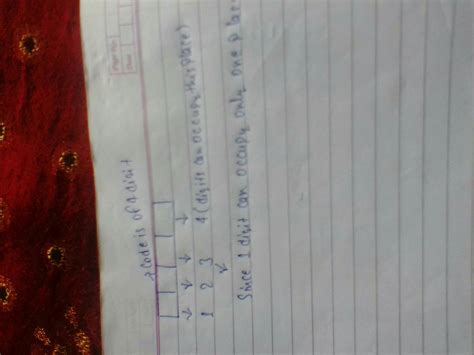 → Code is of 4 digit
↓ ↓ ↓ ↓
1 2 3 4 (digit can occupy this place)
✓
Since 1 digit can occupy only one place